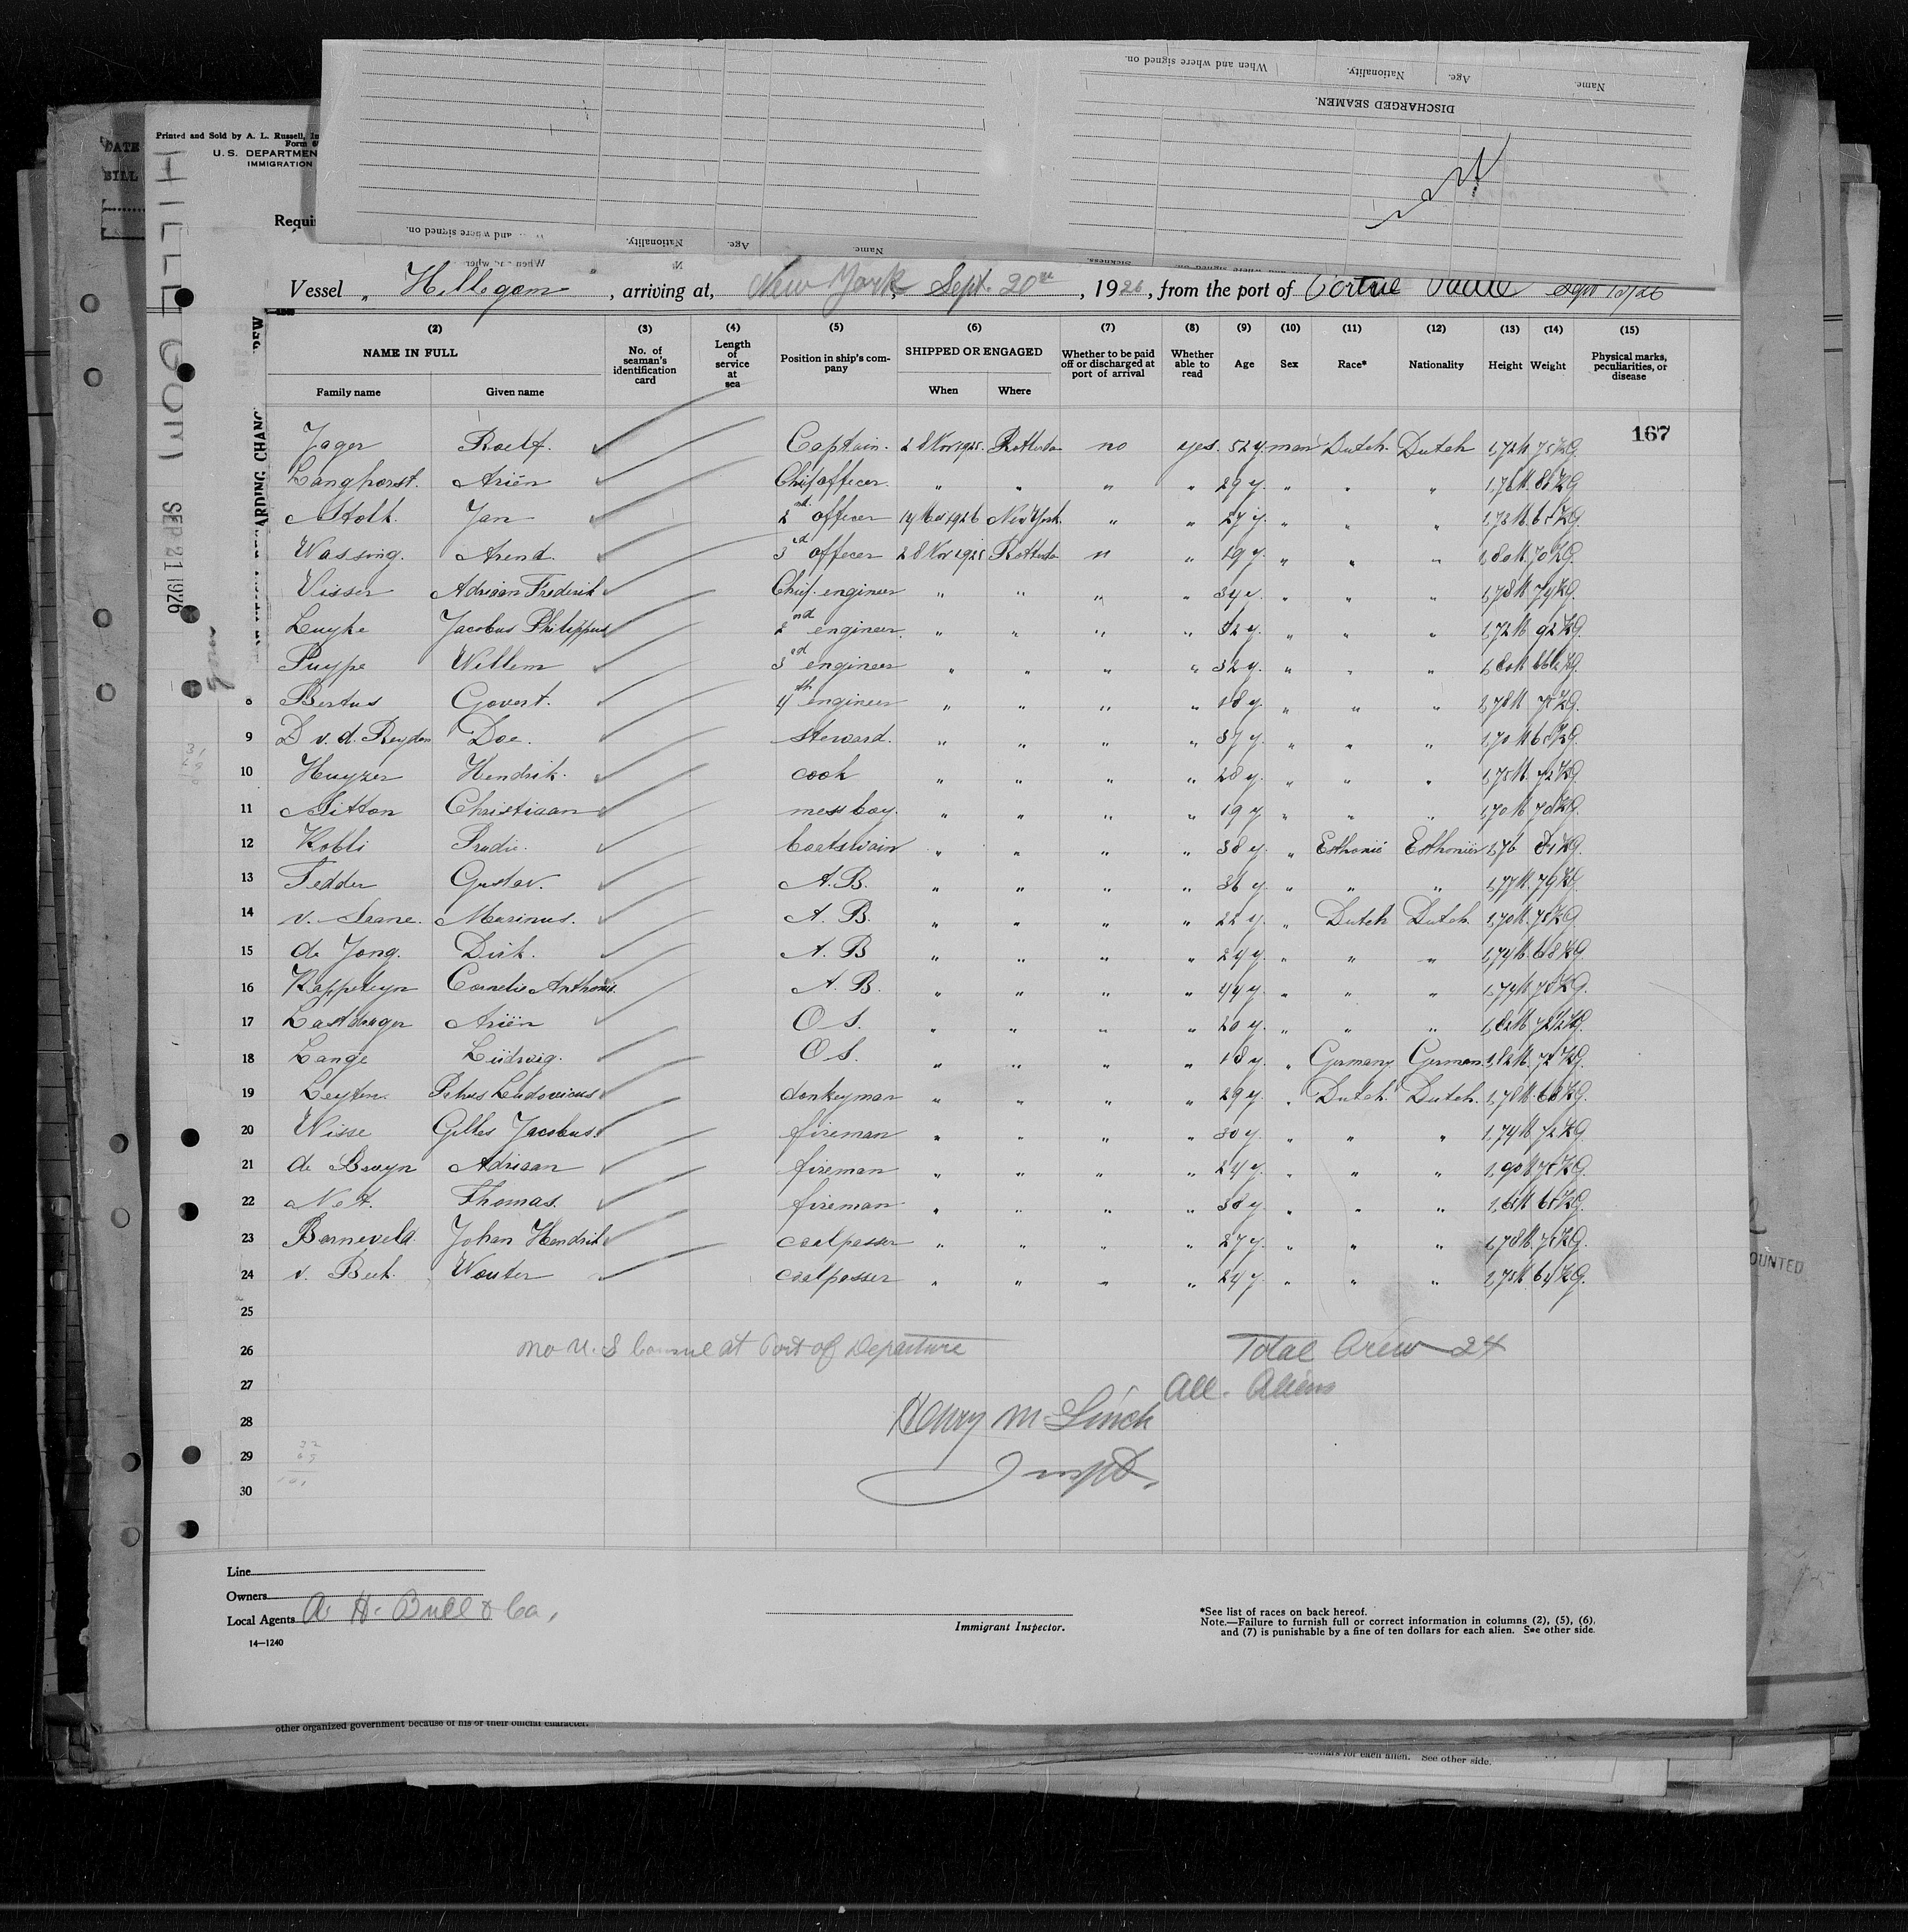 When and where signed on.
Nationality.
Age.
Name.
DISCHARGED SEAMEN.
DATE
BILL
Printed and Sold by A. L. Russell, In
Form 6
U. S. DEPARTMEN
IMMIGRATION
Requi
and where signed on.
Nationality.
Age.
Name.
HILLEGOM SEP 21 1926
Vessel „ Hillegom , arriving at, New York, Sept. 20th , 1926, from the port of
ARDING CHANG
(2) (3) (4) (5) (6) (7) (8) (9) (10) (11) (12) (13) (14) (15)
NAME IN FULL
Family name Given name
No. of seaman's identification card
Length of service at sea
Position in ship's company
SHIPPED OR ENGAGED
When Where
Whether to be paid off or discharged at port of arrival
Whether able to read
Age Sex Race* Nationality Height Weight
Physical marks, peculiarities, or disease
167
Jager Roelf. Captain. 28 Nov 1925. no yes. 52 y. man Dutch Dutch 1,72 M. 75 KG.
Langhorst. Ariën Chief officer. „ „ „ „ 29 y. „ „ „
Stolk. Jan 2nd officer 1926 New York. „ „ 27 y. „ „ „ 1,78 M.
Wassing. Arend. 3rd officer 28 Nov 1925 „ 19 y. „ „ „ 1,80 M. 70 KG.
Visser Adriaan Frederik Chief. engineer „ „ „ „ 34 y. „ „ „ 1,78 M. 74 KG.
Luyke Jacobus Philippus 2nd engineer. „ „ „ „ „ „ „ 1,72 M. 92 KG.
Puype Willem 3rd engineer „ „ „ „ 32 y. „ „ „
8 Bertus Govert. 4th engineer „ „ „ „ 18 y. „ „ „ 1,78 M
9 D v. d. Reyden Doe. steward. „ „ „ „ 37 y. „ „ „ 1,70 M
10 Huyzer Hendrik. cook „ „ „ „ 28 y. „ „ „ 1,75 M. 72 KG.
11 Sitton Christiaan mess boy. „ „ „ „ 19 y „ „ „ 1,70 M. 70 KG.
12 Kobli Prudie. boatswain „ „ „ „ 38 y. „ Esthonië Esthoniër 1,76 81 KG.
13 Fedder Gustav. A. B. „ „ „ „ 36 y. „ „ „ 1,77 M. 79 KG.
14 v. Seane. Marinus. A. B. „ „ „ „ 22 y. „ Dutch Dutch. 1,70 M. 75 KG.
15 de Jong. Dirk. A. B „ „ „ „ 24 y. „ „ „ 1,74 M. 68 KG.
16 Kappeteyn Cornelis Anthonis. A. B. „ „ „ „ 44 y. „ „ „ 1,74 M.
17 Lastdrager Ariën O S. „ „ „ „ 20 y. „ „ „ 1,82 M.
18 Lange Lüdwig. O S. „ „ „ „ 18 y. „ Germany German. 1,82 M.
19 Leyten. Petrus Ludovicus donkeyman „ „ „ „ 29 y. „ Dutch. Dutch. 1,78 M. 68 KG.
20 Wisse Gilles Jacobus. fireman „ „ „ „ 30 y. „ „ „ 1,74 M. 72 KG.
21 de Bruyn Adriaan fireman „ „ „ „ 24 y. „ „ „ 1,90 M.
22 Net. Thomas. fireman „ „ „ „ 38 y. „ „ „
23 Barneveld Johan Hendrik coalpasser „ „ „ „ 27 y. „ „ „ 1,78 M.
24 v. Beek. Wouter coalpasser „ „ „ „ 24 y. „ „ „ 1,75 M. 64 KG.
25
26 No U. S Consul at Port of Departure Total Crew 24
27 All. Aliens
28 Henry M Linch
29 Inspt.
30
Line
Owners
Local Agents A. H. Bull & Co.,
14—1240
Immigrant Inspector.
*See list of races on back hereof.
Note.—Failure to furnish full or correct information in columns (2), (5), (6),
and (7) is punishable by a fine of ten dollars for each alien. See other side.
OUNTED
other organized government because of his or their official character.
dollars for each alien. See other side.